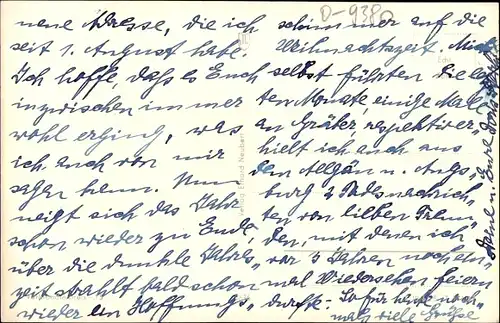 neue Adresse, die ich
seit 1. August habe.
Ich hoffe, dass es Euch
inzwischen immer
wohl erging, was
ich auch von mir
sagen kann. Nun
neigt sich das Jahr
schon wieder zu Ende,
über die dunkle Jahres-
zeit strahlt bald schon
wieder ein Hoffnungs-
schimmer auf die
Weihnachtszeit. Mich
selbst führten die letz-
ten Monate, einige Mal
an Gräber, respektive er-
hielt ich auch aus
dem Allgäu u. Augs-
burg 3 Todesnachrich-
ten von lieben Freun-
den, mit denen ich
vor 3 Jahren noch ein-
mal Wiedersehen feiern
durfte. So für heute noch-
mals viele Grüsse
D-9380
Echt